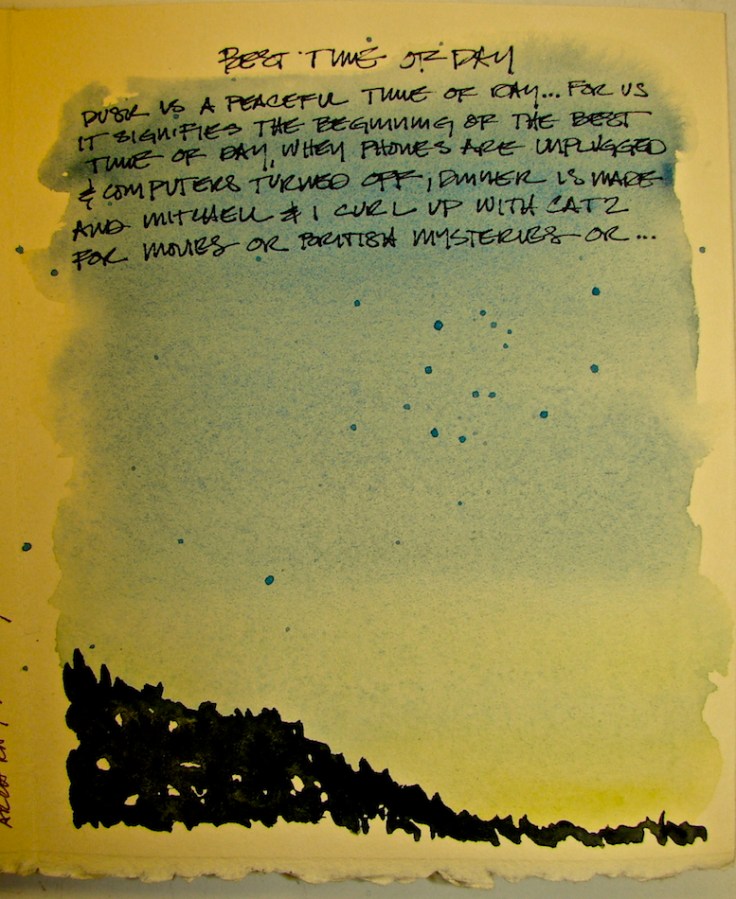 BEST TIME OF DAY
DUSK IS A PEACEFUL TIME OF DAY... FOR US
IT SIGNIFIES THE BEGINNING OF THE BEST
TIME OF DAY, WHEN PHONES ARE UNPLUGGED
& COMPUTERS TURNED OFF, DINNER IS MADE
AND MITCHELL & I CURL UP WITH CATZ
FOR MOVIES OR BRITISH MYSTERIES OR...